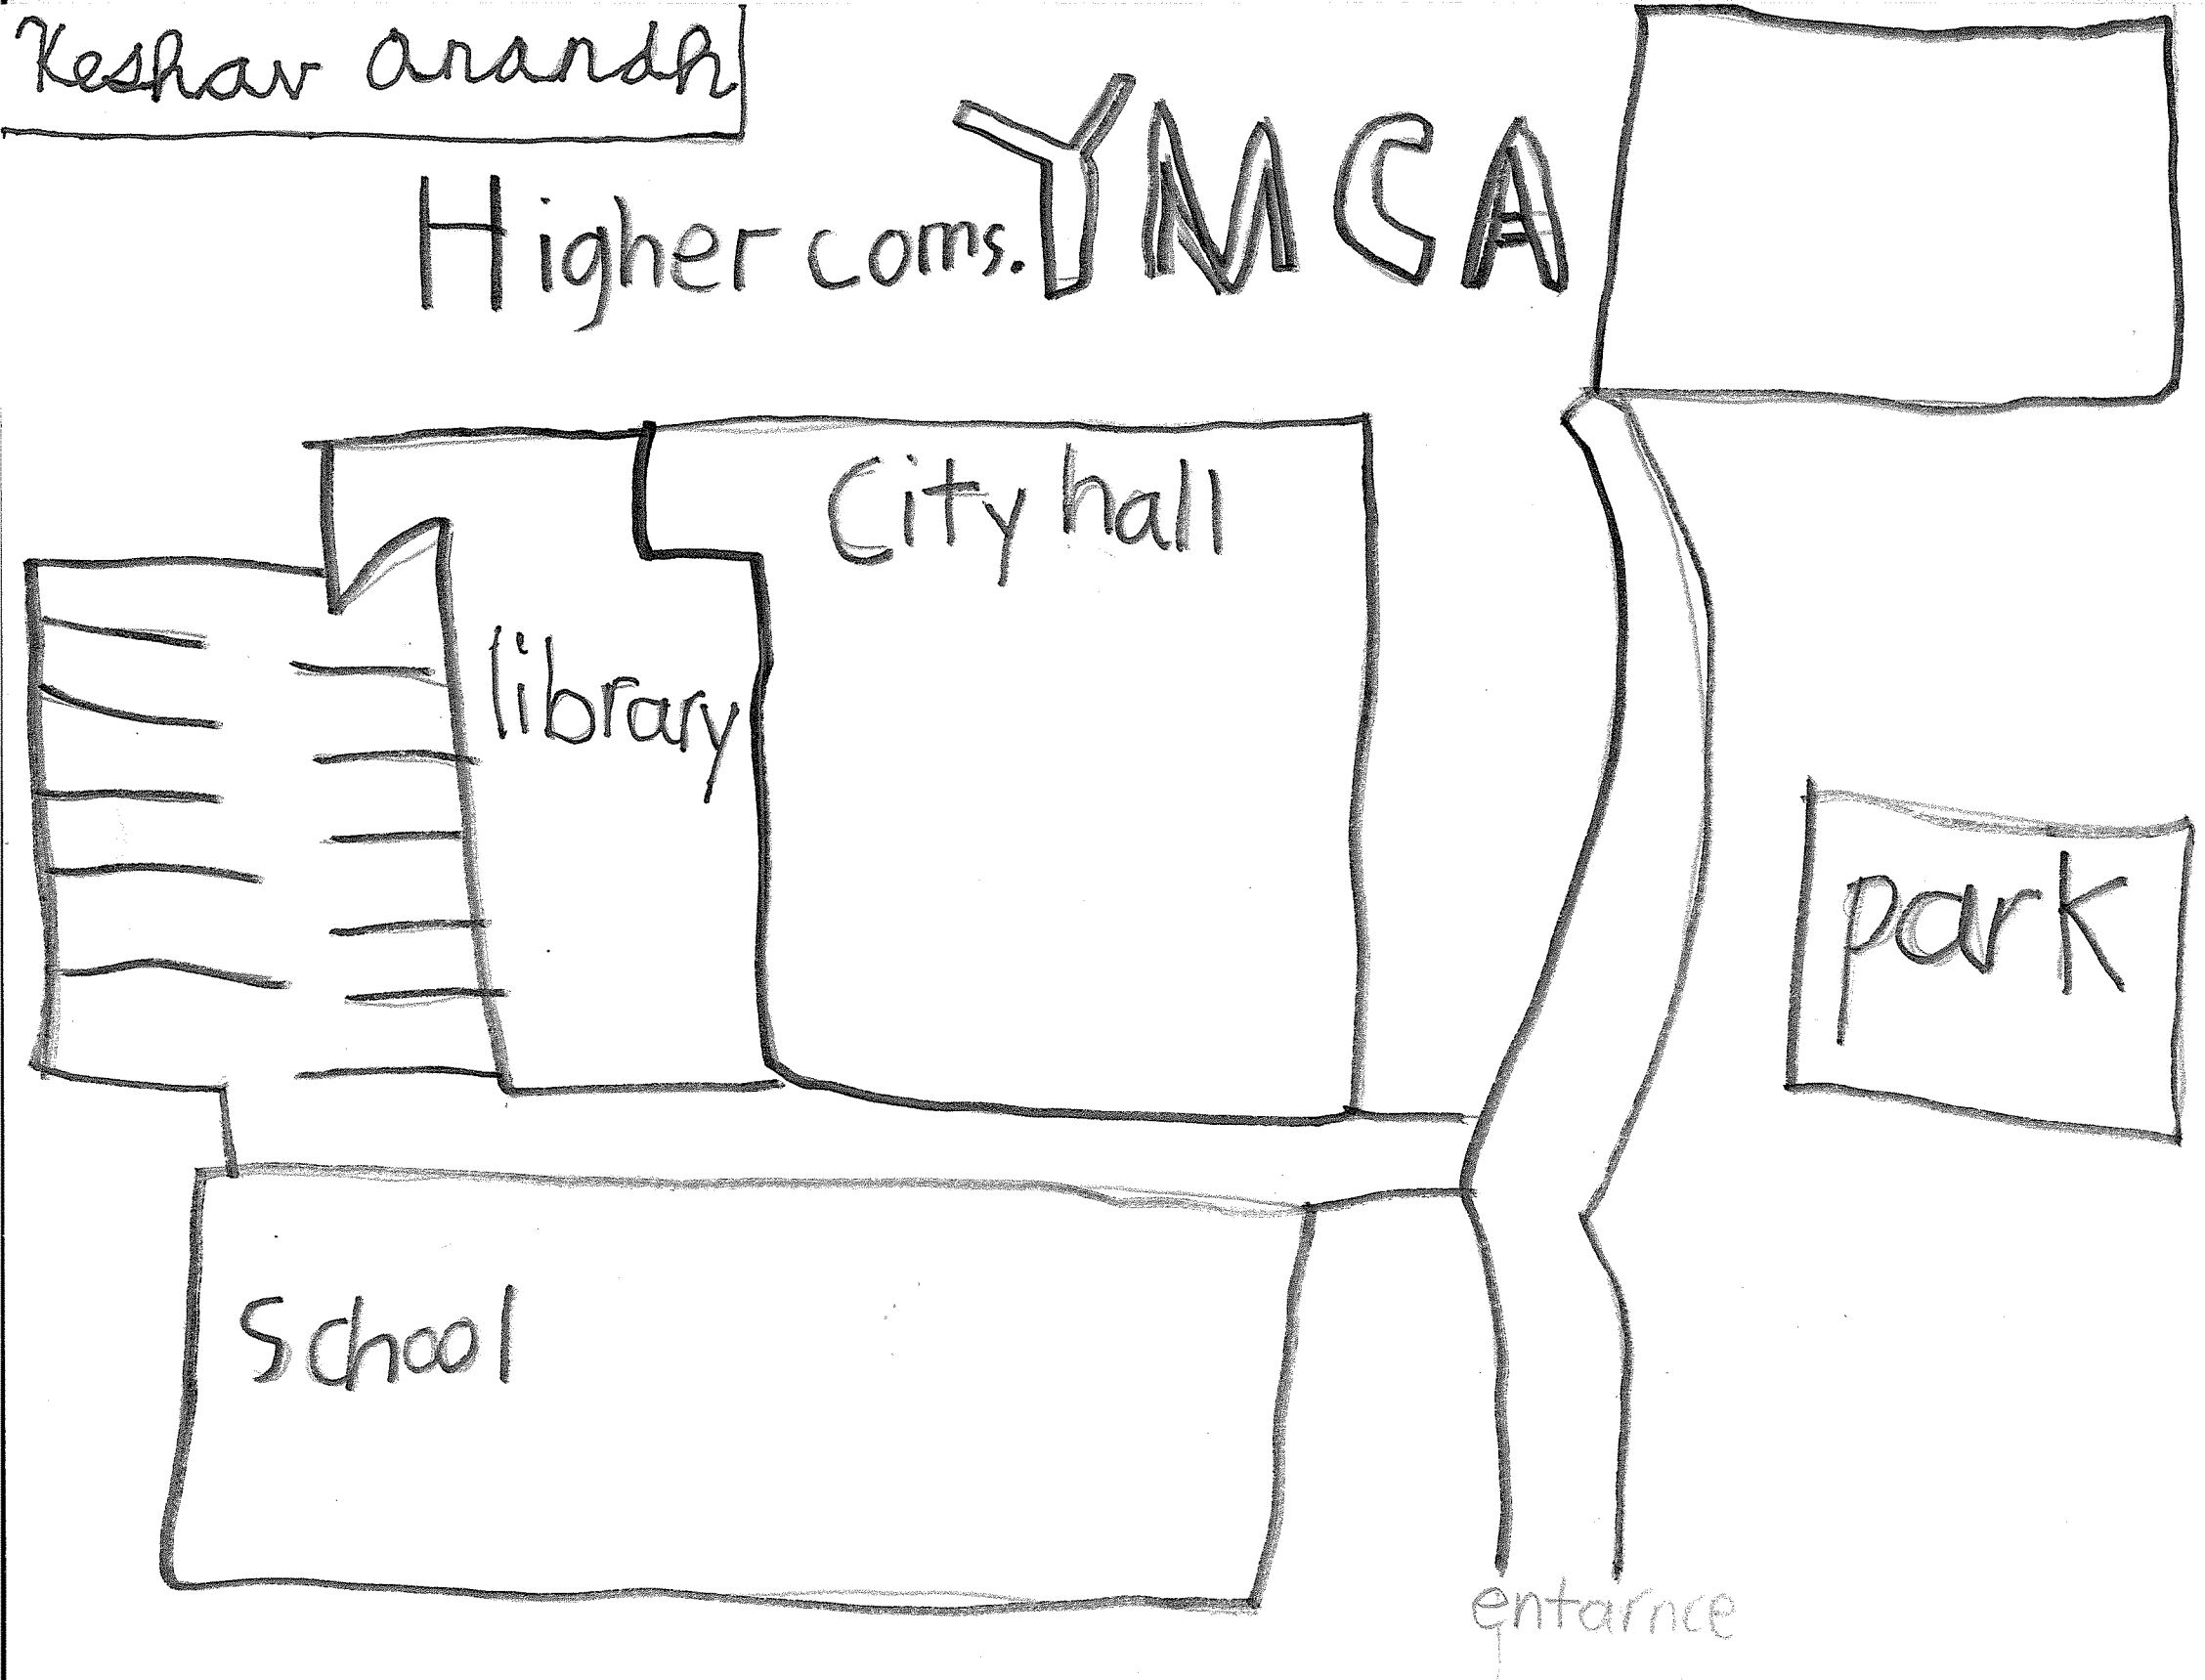 Keshav Anandh
Higher coms. YMCA
City hall
library
park
School
entarnce